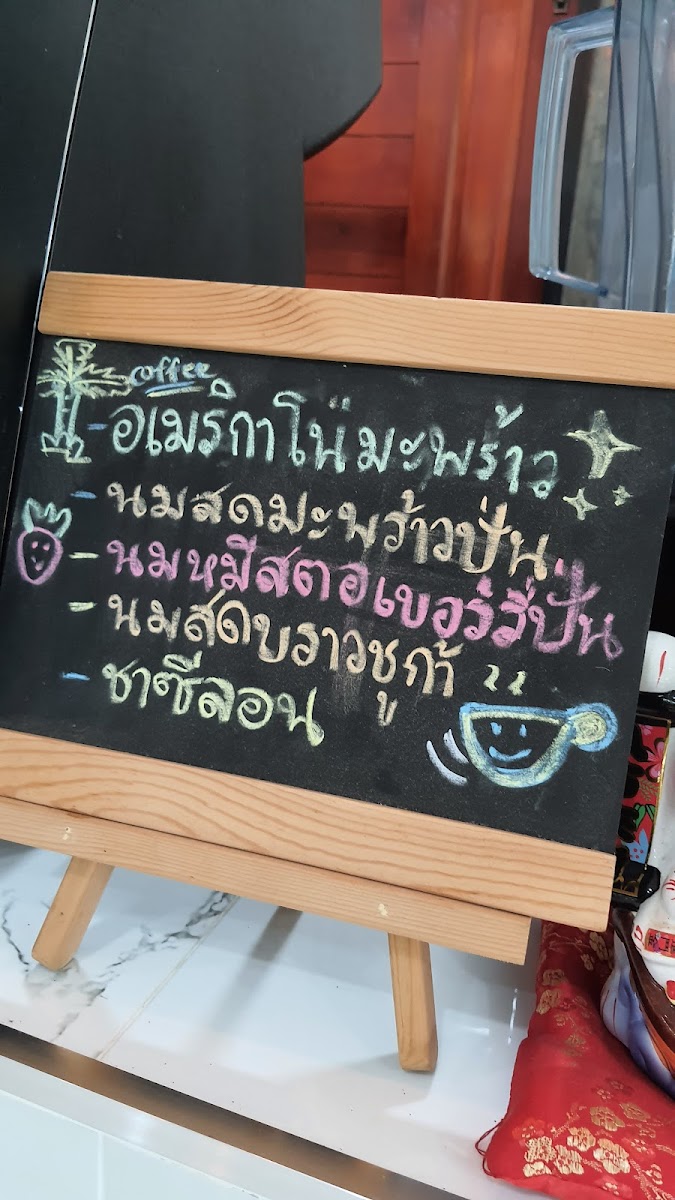 coffee
- อเมริกาโน่มะพร้าว
- นมสดมะพร้าวปั่น
- นมหมีสตอเบอร์รี่ปั่น
- นมสดบราวชูก้า
- ชาซีลอน